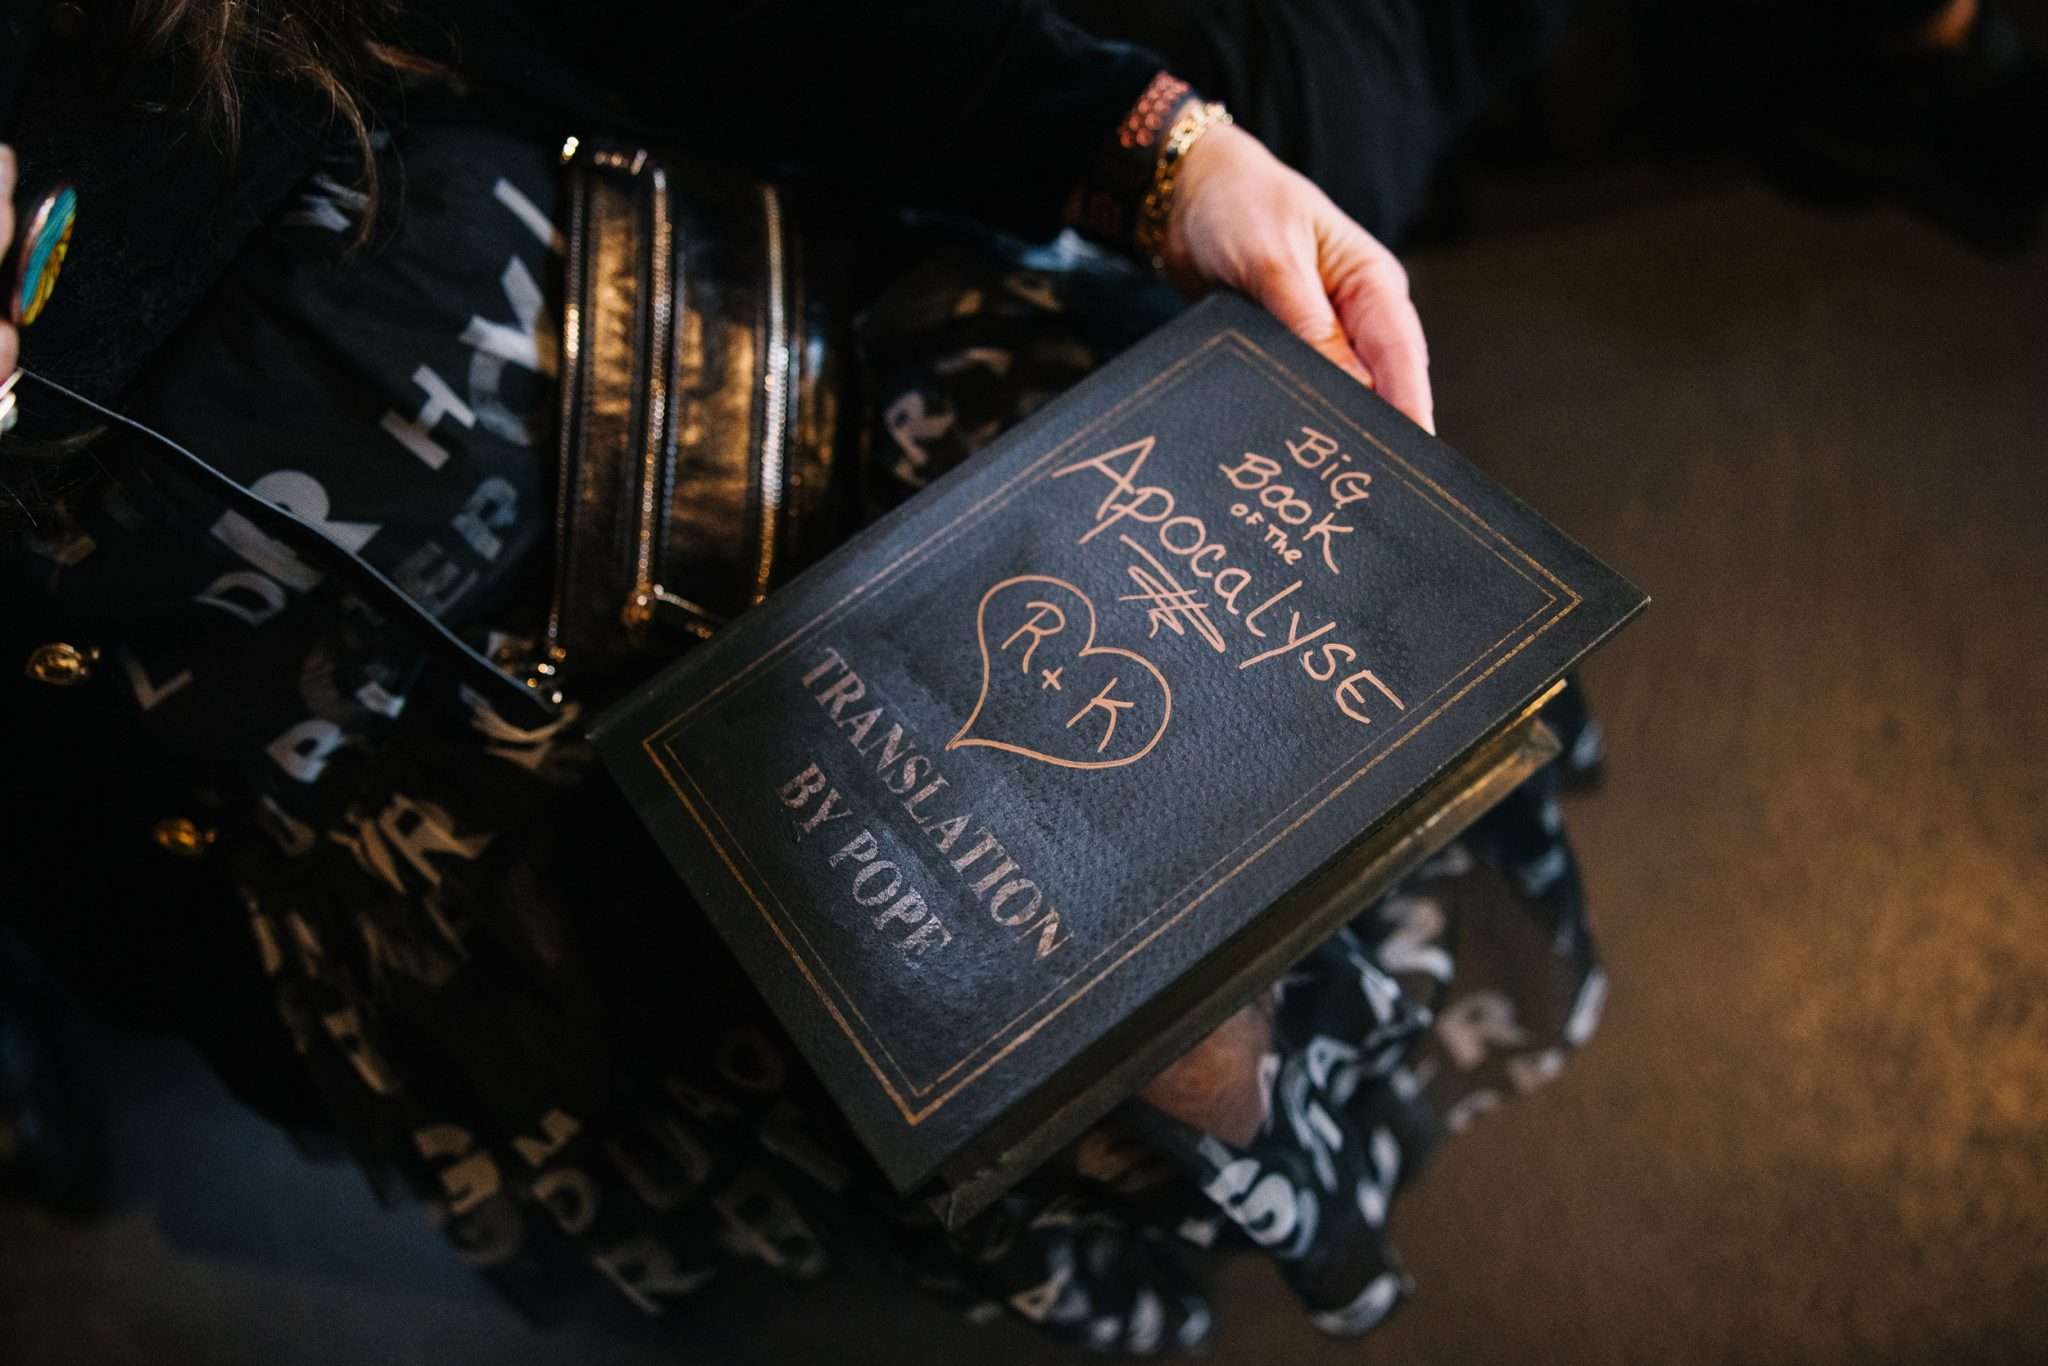 BiG
BOOK
OF The
APOCALYPSE
R + K
TRANSLATION
BY POPE